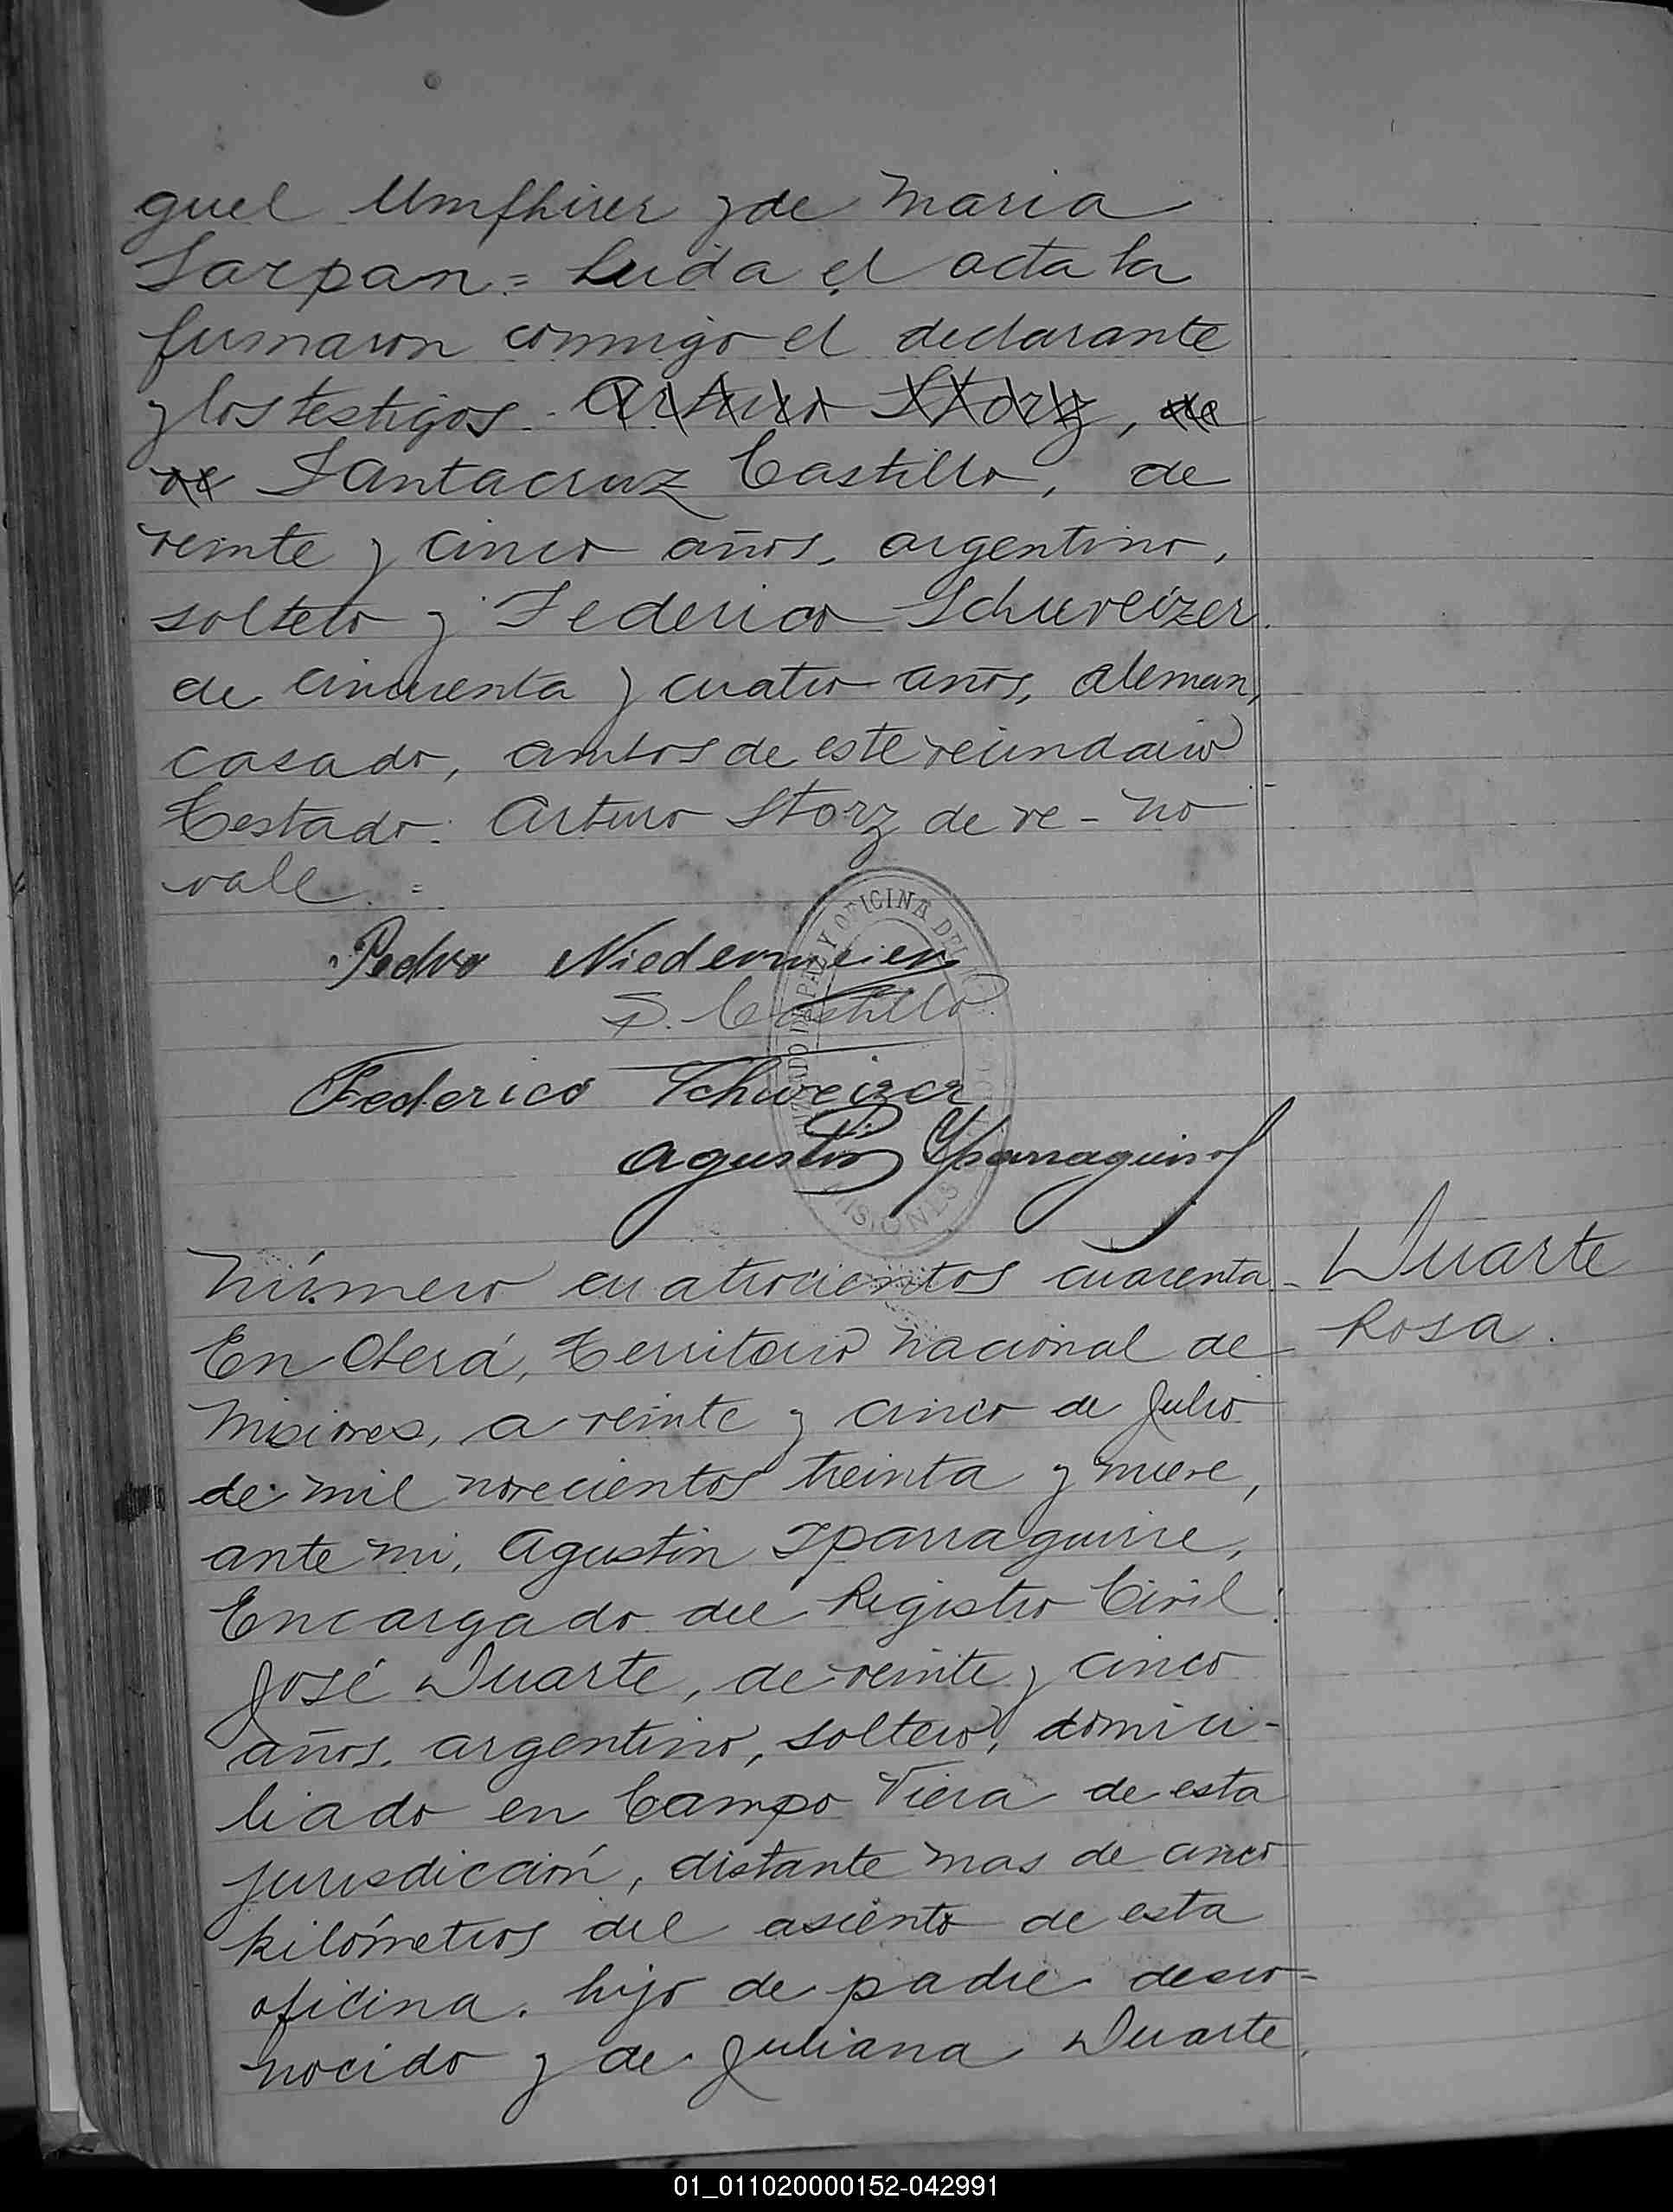 guel Umfhirer y de Maria
Sarpan = Leida el acta la
firmaron conmigo el declarante
y los testigos. Arturo Storz, de
re Santacruz Castillo, de
veinte y cinco años, argentino,
soltero y Federico Schweizer.
de cincuenta y cuatro años, aleman,
casado, ambos de este vecindario
Testado: Arturo Storz de re - no
vale. =
Pedro Niedermeier
S. Castillo
Federico Schweizer
Agustin Yparraguirre
JUZGADO DE PAZ Y OFICINA DEL
MISIONES
Número cuatrocientos cuarenta
Duarte
Rosa.
En Oberá, Territorio Nacional de
Misiones, a veinte y cinco de Julio
de mil novecientos treinta y nueve,
ante mi, Agustin Iparraguirre,
Encargado del Registro Civil:
José Duarte, de veinte y cinco
años, argentino, soltero, domici-
liado en Campo Viera de esta
jurisdicción, distante mas de cinco
kilómetros del asiento de esta
oficina. hijo de padre desco-
nocido y de Juliana Duarte,
01_011020000152-042991